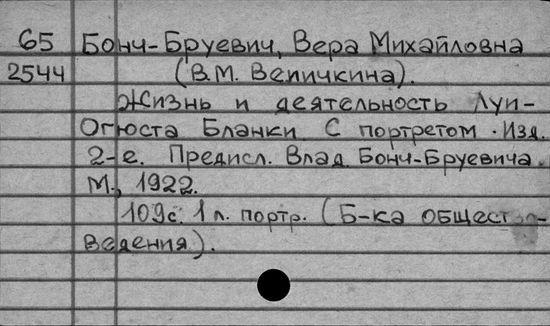 65 Бонч-Бруевич, Вера Михайловна
2544 (В.М. Величкина).
Жизнь и деятельность Луи-
Огюста Бланки С портретом. Изд.
2-е. Предисл. Влад. Бонч-Бруевича.
М., 1922.
109с. 1 л. портр. (Б-ка общество-
ведения).